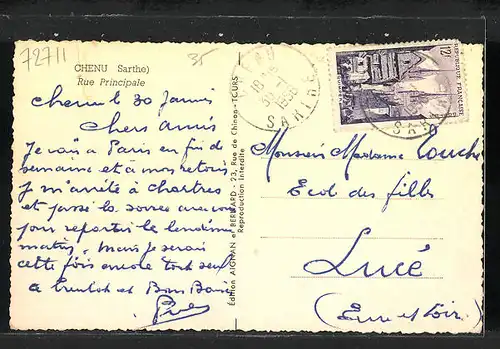 72711
35
CHENU Sarthe)
Rue Principale
Chenu le 30 Janvier
Chers amis
Je vais à Paris en fin de
semaine et à mon retour
je m'arrête à Chartres
et passe la soirée avec vous
pour repartir le lendemain
matin. Mais je serai
cette fois encore tout seul
à bientôt et Bons Baisers
Edition AIGNAN et BERNARD - 23, Rue de Chinon - TOURS
Reproduction interdite
18
SARTHE
12
REPUBLIQUE FRANÇAISE
Monsieur Madame Touche
Ecol des filles
Lucé
(Eure et Loir)